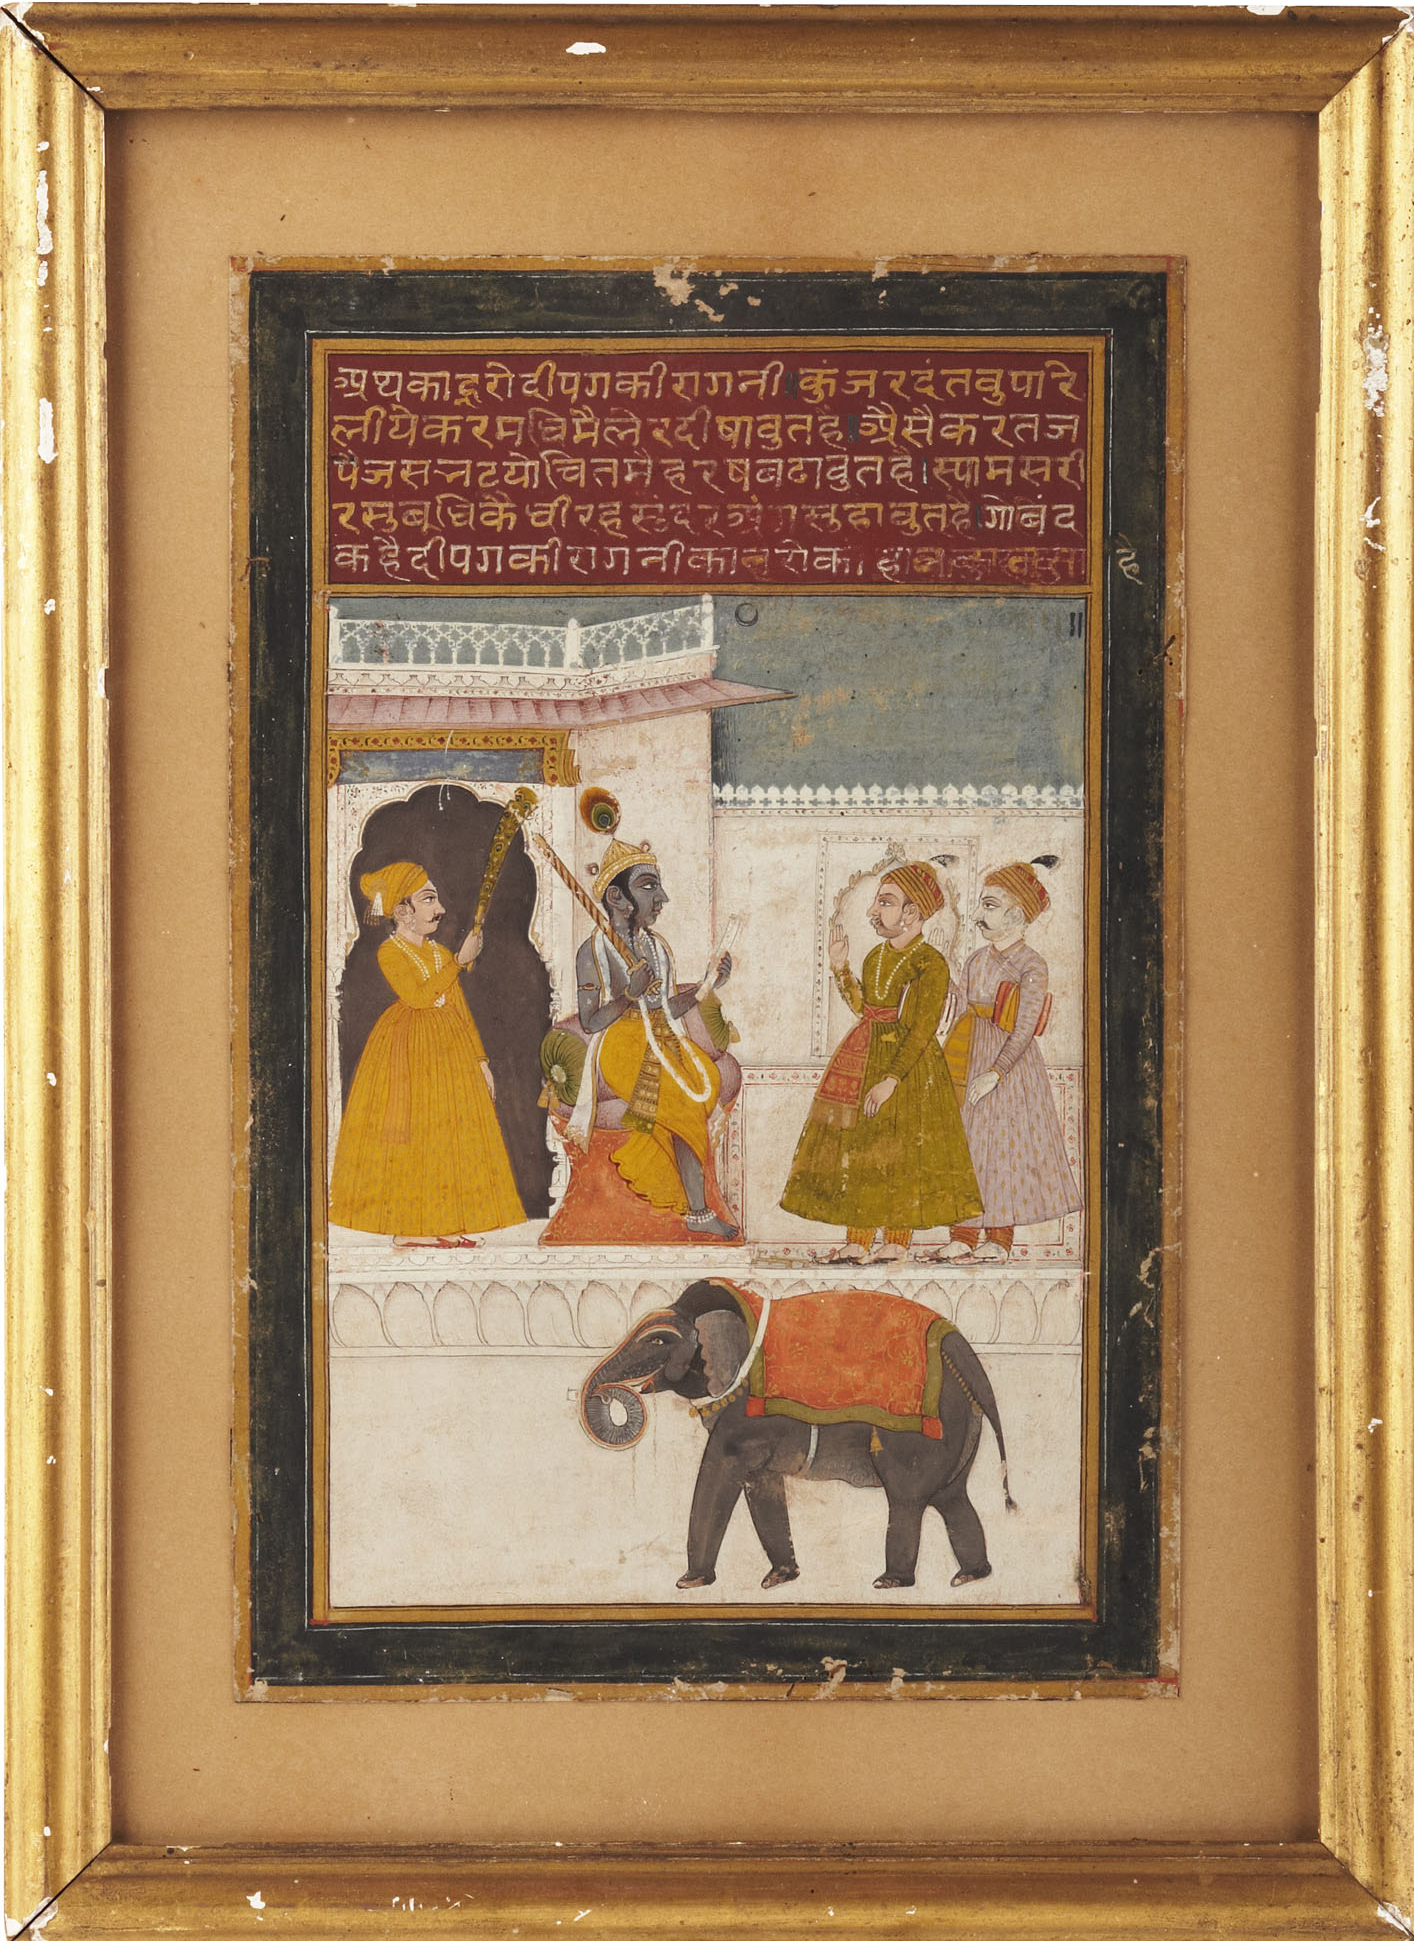 अथ कान्हरो दीपग की रागनी ॥ कुंजर दंत वुपारे
लीये कर मधि मैले रदी षावुत है ॥ अैसै करत ज
पै जस नटयो चित मै हरष बढावुत है । स्याम सरी
र सुबुधि कै धीरह सुंदर अंग सुहावुत है । गोबिंद
कहै दीपग की रागनी कानरो क
है
॥